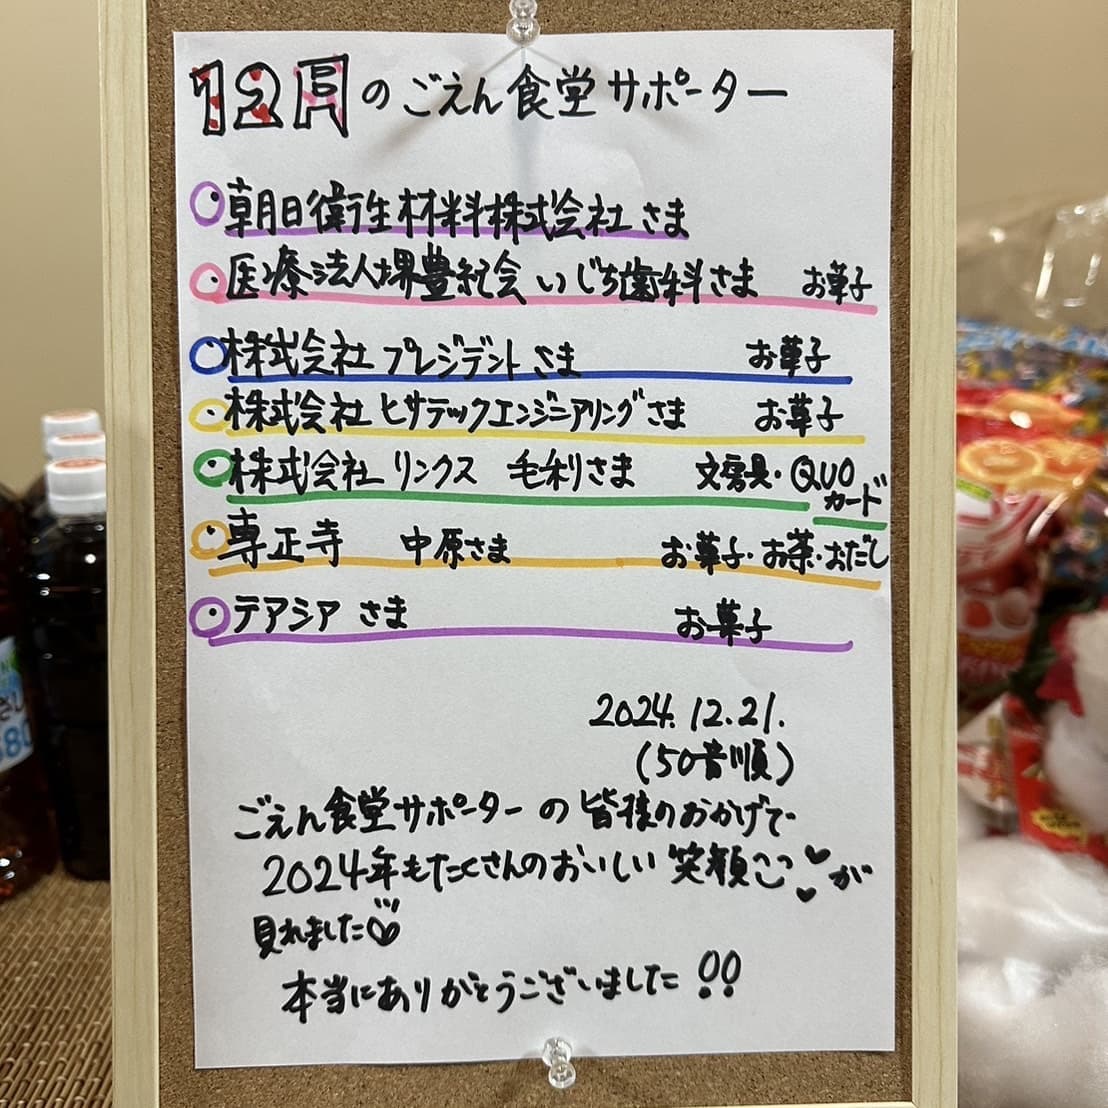 12月のごえん食堂サポーター
朝日衛生材料株式会社さま
医療法人堺豊紀会 いじち歯科さま お菓子
株式会社プレジデントさま お菓子
株式会社ヒサテックエンジニアリングさま お菓子
株式会社リンクス 毛利さま 文房具・QUO
カード
専正寺 中原さま お菓子・お茶・おだし
テアシア さま お菓子
2024.12.21.
(50音順)
ごえん食堂サポーターの皆様のおかげで
2024年もたくさんのおいしい笑顔ここが
見れました
本当にありがとうございました!!